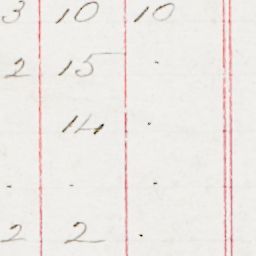 3 10 10
2 15 .
14 .
. . .
2 2 .